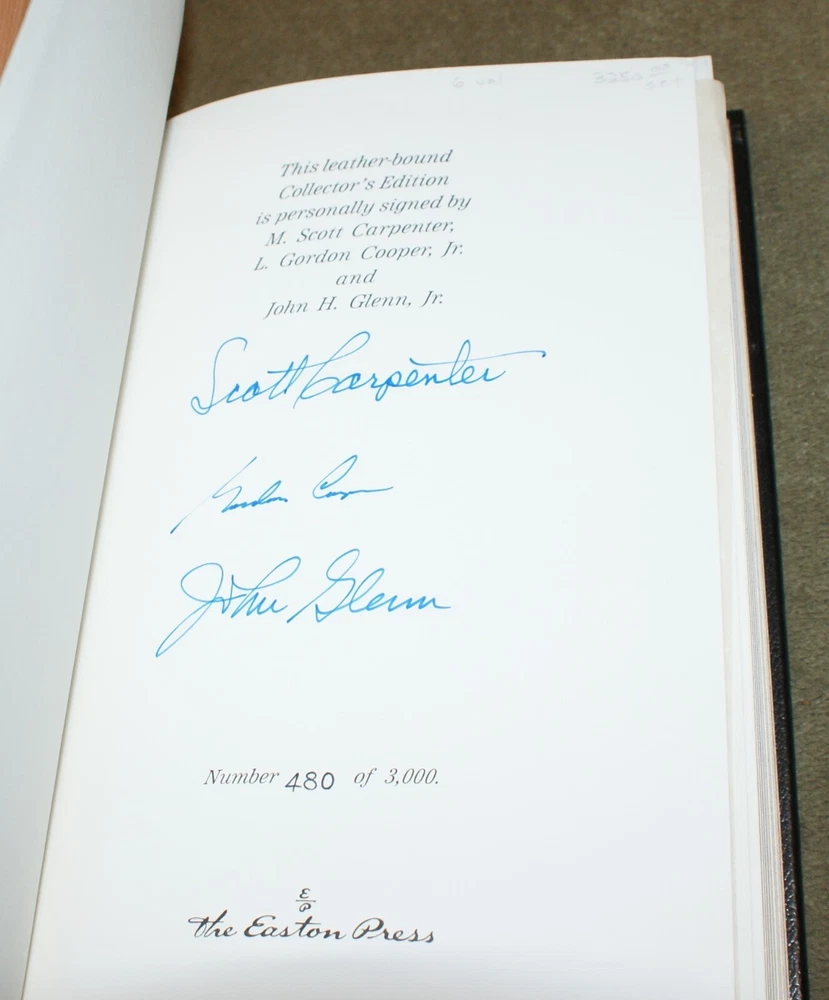 6 vol
This leather-bound
Collector's Edition
is personally signed by
M. Scott Carpenter,
L. Gordon Cooper, Jr.
and
John H. Glenn, Jr.
Scott Carpenter
Gordon Cooper
John Glenn
Number 480 of 3,000.
E
P
The Easton Press